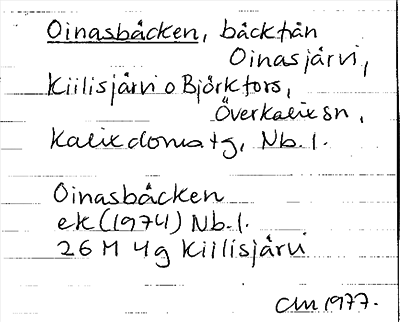 Oinasbäcken, bäck från
Oinasjärvi,
Kiilisjärvi o Björkfors,
Överkalix sn,
Kalix doms tg, Nb. l.
Oinasbäcken
ek (1974) Nb. l.
26 M 4g Kiilisjärvi
CM 1977.